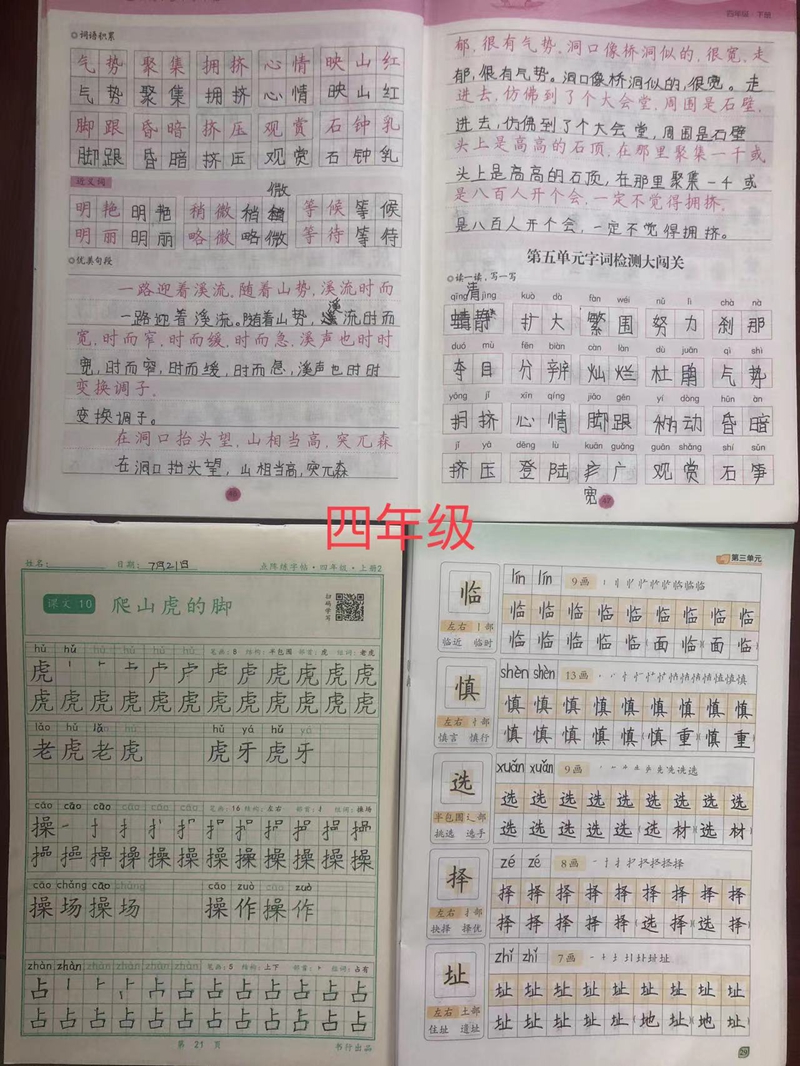 词语积累
气势 聚集 拥挤 心情 映山红
气势 聚集 拥挤 心情 映山红
脚跟 昏暗 挤压 观赏 石钟乳
脚跟 昏暗 挤压 观赏 石钟乳
近义词
微
明艳 明艳 稍微 稍 等候 等候
明丽 明丽 略微 略微 等待 等待
优美句段
一路迎着溪流,随着山势,溪流时而
溪
一路迎着溪流。随着山势,流时而
宽,时而窄,时而缓,时而急,溪声也时时
宽,时而窄,时而缓,时而急,溪声也时时
变换调子。
变换调子。
在洞口抬头望,山相当高,突兀森
在洞口抬头望,山相当高,突兀森
四年级·下册
郁,很有气势。洞口像桥洞似的,很宽。走
郁,很有气势。洞口像桥洞似的,很宽。走
进去,仿佛到了个大会堂,周围是石壁,
进去,仿佛到了个大会堂,周围是石壁
头上是高高的石顶,在那里聚集一千或
头上是高高的石顶,在那里聚集一千或
是八百人开个会,一定不觉得拥挤。
是八百人开个会,一定不觉得拥挤。
第五单元字词检测大闯关
读一读,写一写
qīng jìng kuò dà fán wéi nǔ lì chà nà
清
静 扩大 繁围 努力 刹那
duó mù fēn biàn càn làn dù juān qì shì
夺目 分辨 灿烂 杜鹃 气势
yōng jǐ xīn qíng jiǎo gēn yí dòng hūn àn
拥挤 心情 脚跟 动 昏暗
jǐ yā dēng lù kuān guǎng guān shǎng shí sǔn
挤压 登陆 广 观赏 石笋
宽
47
四年级
姓名: 日期: 7月21日 点阵练字帖·四年级·上册2
课文 10 爬山虎的脚
扫码学写
hǔ hǔ hǔ hǔ hǔ hǔ 笔画:8 结构:半包围 部首:虎 组词:老虎
虎 虎 虎 虎 虎
虎虎虎虎虎虎虎虎虎虎虎虎
lǎo hǔ lǎo hǔ hǔ yá hǔ yá
老虎老虎 虎牙虎牙
cāo cāo cāo cāo cāo cāo 笔画:16 结构:左右 部首:扌 组词:操场
操
操操操操操操操操操操操操
cāo chǎng cāo chǎng cāo zuò cāo zuò
操场操场 操作操作
zhàn zhàn zhàn zhàn zhàn zhàn 笔画:5 结构:上下 部首:⺊ 组词:占有
占 占占占占占占占
占占占占占占占占占占占占
第 21 页 书行出品
第三单元
临 lín lín 9画
临临临临临临临临
左右 丨部 临临临临临面临面临
临近 临时
慎 shèn shèn 13画
慎慎慎慎慎慎慎慎
左右 忄部 慎慎慎慎慎重慎重
慎言 慎行
选 xuǎn xuǎn 9画
选选选选选选选选
半包围 辶部 选选选选选材选材
挑选 选手
择 zé zé 8画
择择择择择择择择
左右 扌部 择择择择择选择选择
抉择 择优
址 zhǐ zhǐ 7画
址址址址址址址址
左右 土部 址址址址址地址地址
住址 遗址
29